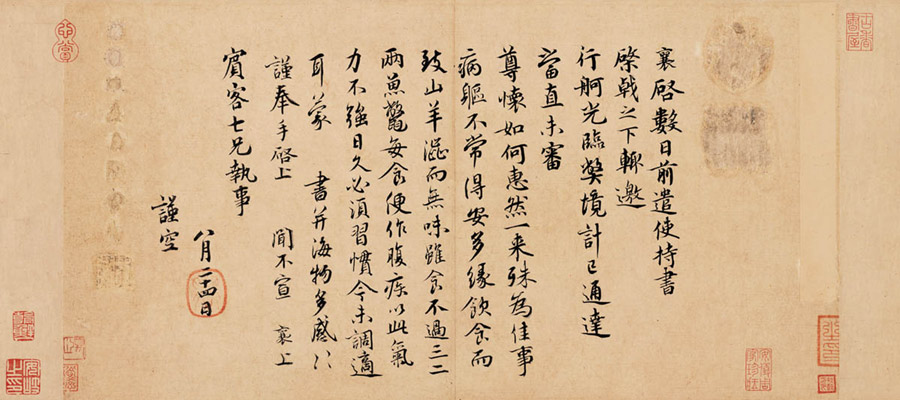 襄啓數日前遣使持書
棨戟之下輒邀
行舸光臨弊境計已通達
當直未審
尊懷如何惠然一来殊為佳事
病軀不常得安多緣飲食而
致山羊澁而無味雖食不過三二
兩魚鱉每食便作腹疾以此氣
力不強日久必須習慣今未調適
耳蒙 書并海物多感〻
謹奉手啓上 聞不宣 襄上
賓客七兄執事
八月二十四日
謹空